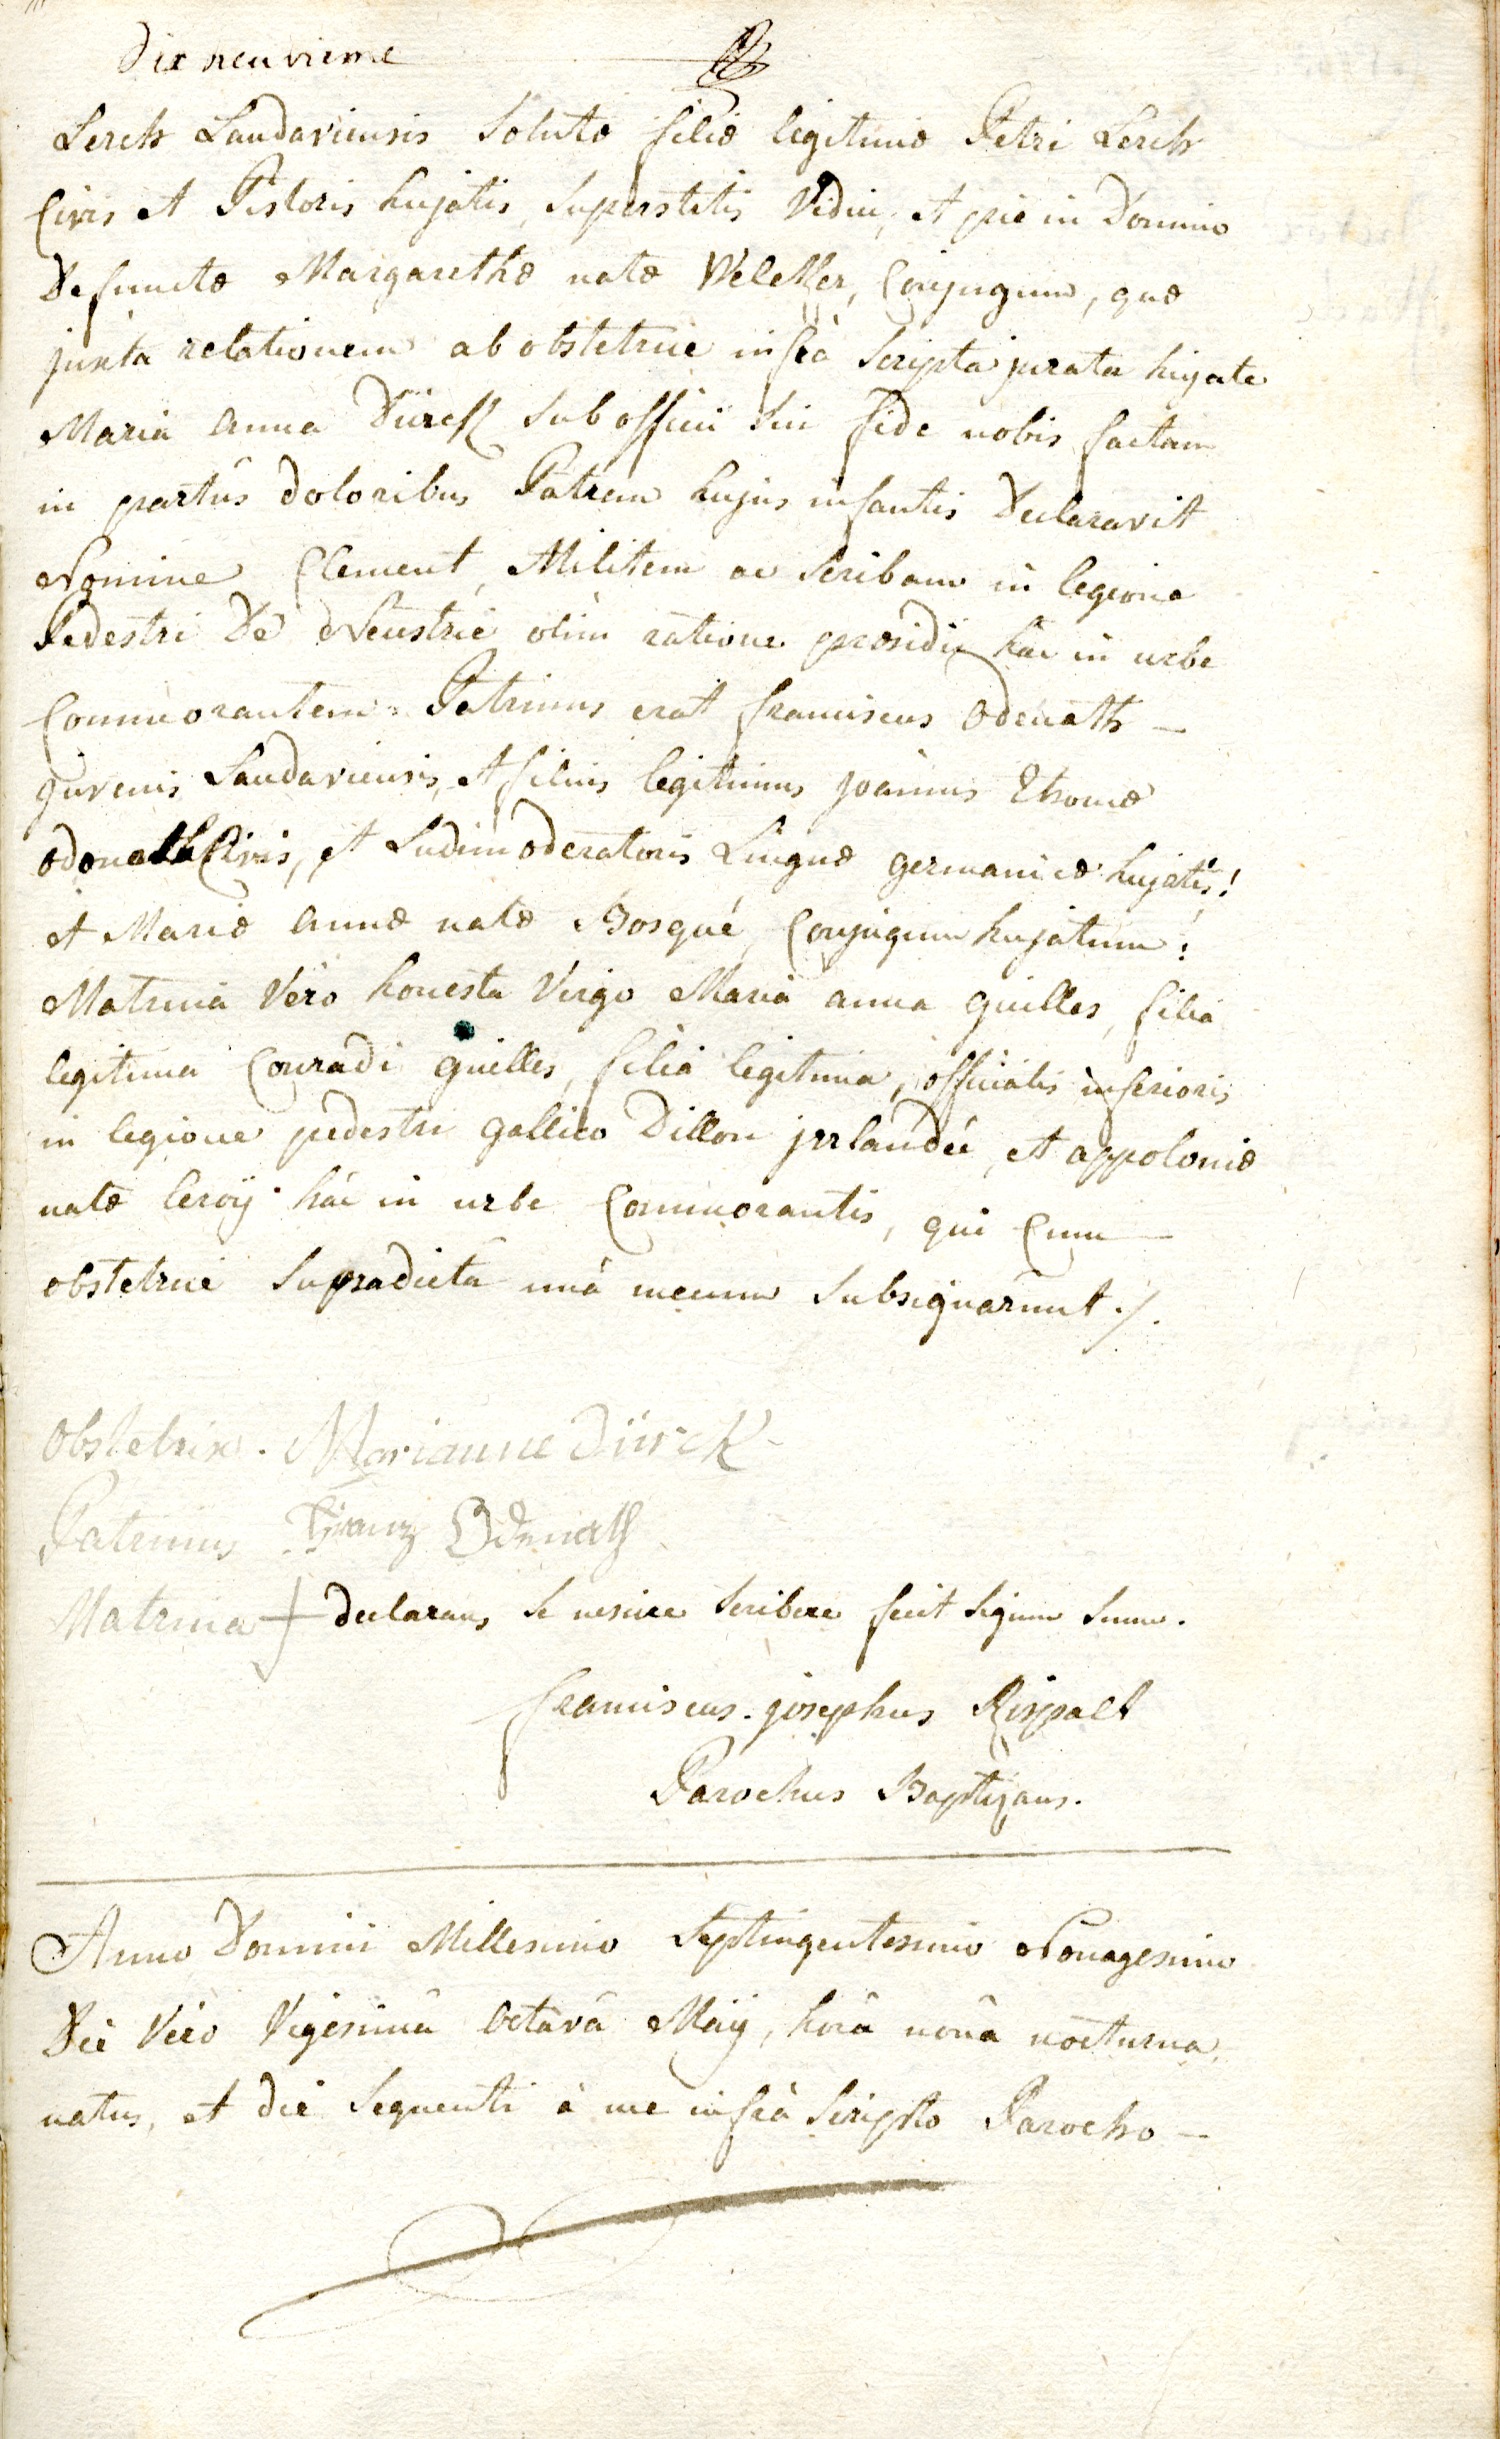 Dix neuvieme
Lerch Landaviensis Solutæ filiæ legitimæ Petri Lerch
Civis et Pistoris hujatis, Superstitis Vidui, et piè in Domino
Defunctæ Margarethæ natæ Weleker, Conjugum, quæ
juxta relationem ab obstetrice infrà Scripta jurata hujate
Mariâ Anna Dürck Sub officii Sui fide nobis factam
in partûs doloribus Patrem hujus infantis Declaravit
Nomine Clement, Militem ac Scribam in legione
Pedestri De Neustrie olim ratione præsidii hâc in urbe
Commorantem. Patrinus erat franciscus Odenath —
juvenis Landaviensis, et filius legitimus joannis Thomæ
Odenath Civis, et Ludimoderatoris Linguæ germanicæ hujatis!
et Mariæ Annæ natæ Bosqué, Conjugum hujatum:
Matrina Vero honesta Virgo Maria anna Guilles, filia
legitima Conradi Guilles, filia legitima, officialis inferioris
in legione pedestri gallico Dillon jrrlandée, et appoloniæ
natæ leroÿ hâc in urbe Commorantis, qui Cum —
obstetrice Supradictâ unâ mecum Subsignarunt ./.
Obstetrix. Marianne Dürck
Patrinus Franz Odenath
Matrina + declarans se nescire scribere fecit signum suum.
franciscus josephus Rispalt
Parochus Baptizans.
Anno Domini Millesimo Septingentesimo Nonagesimo
Die Vero Vigesimâ Octavâ Maij, horâ nonâ nocturna
natus, et die Sequenti à me infrà Scripto Parocho —